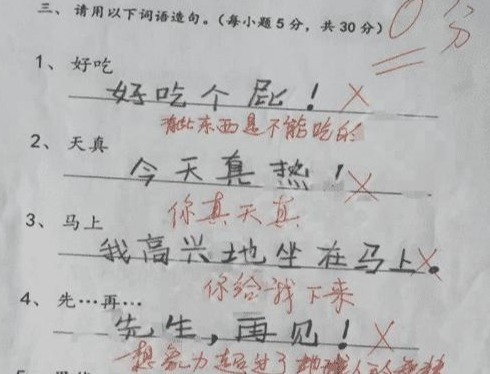 三、请用以下词语造句。(每小题5分,共30分) 0分
1、好吃
好吃个屁!
有些东西是不能吃的
2、天真
今天真热!
你真天真
3、马上
我高兴地坐在马上。
你给我下来
4、先…再…
先生,再见!
想象力超过了地球人的